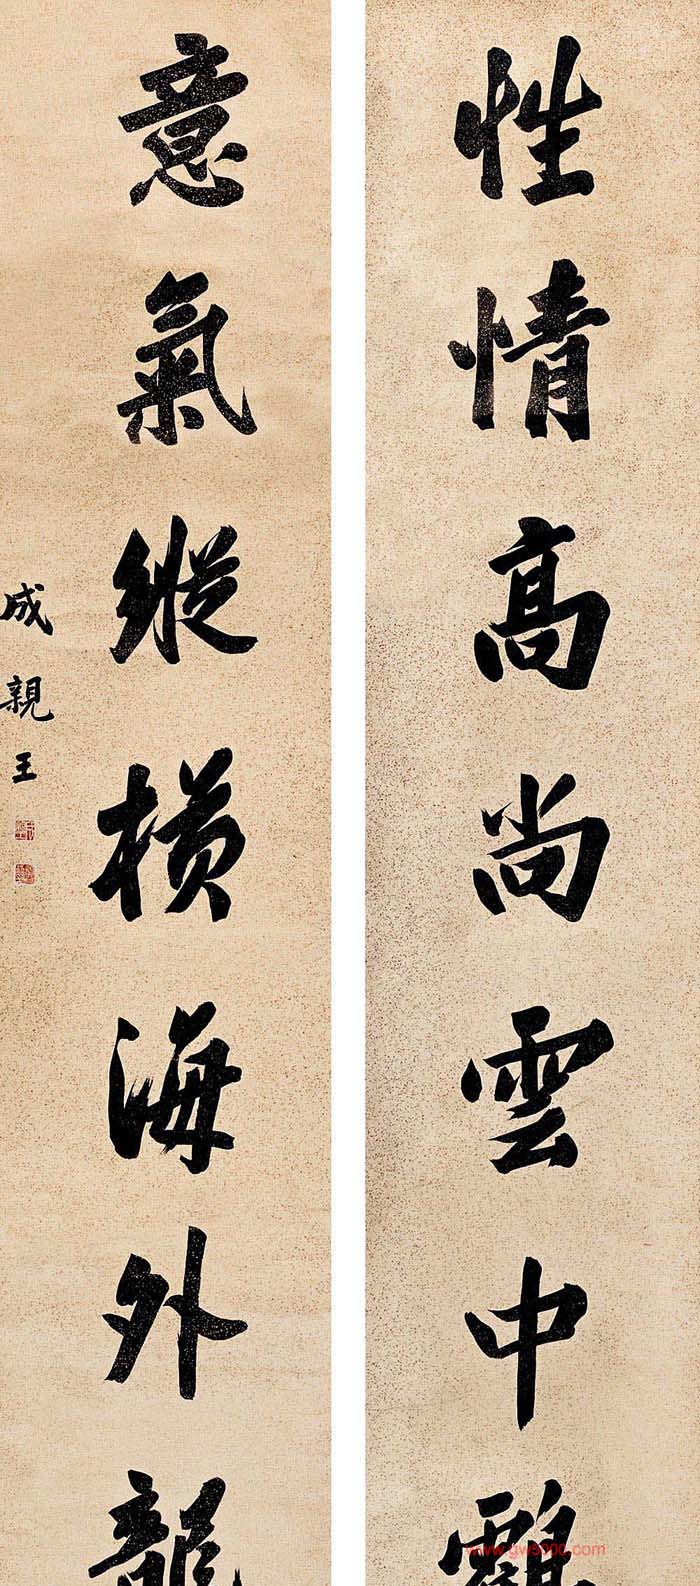 性情高尚雲中鶴
意氣縱橫海外龍
成親王
www.gw5000.com